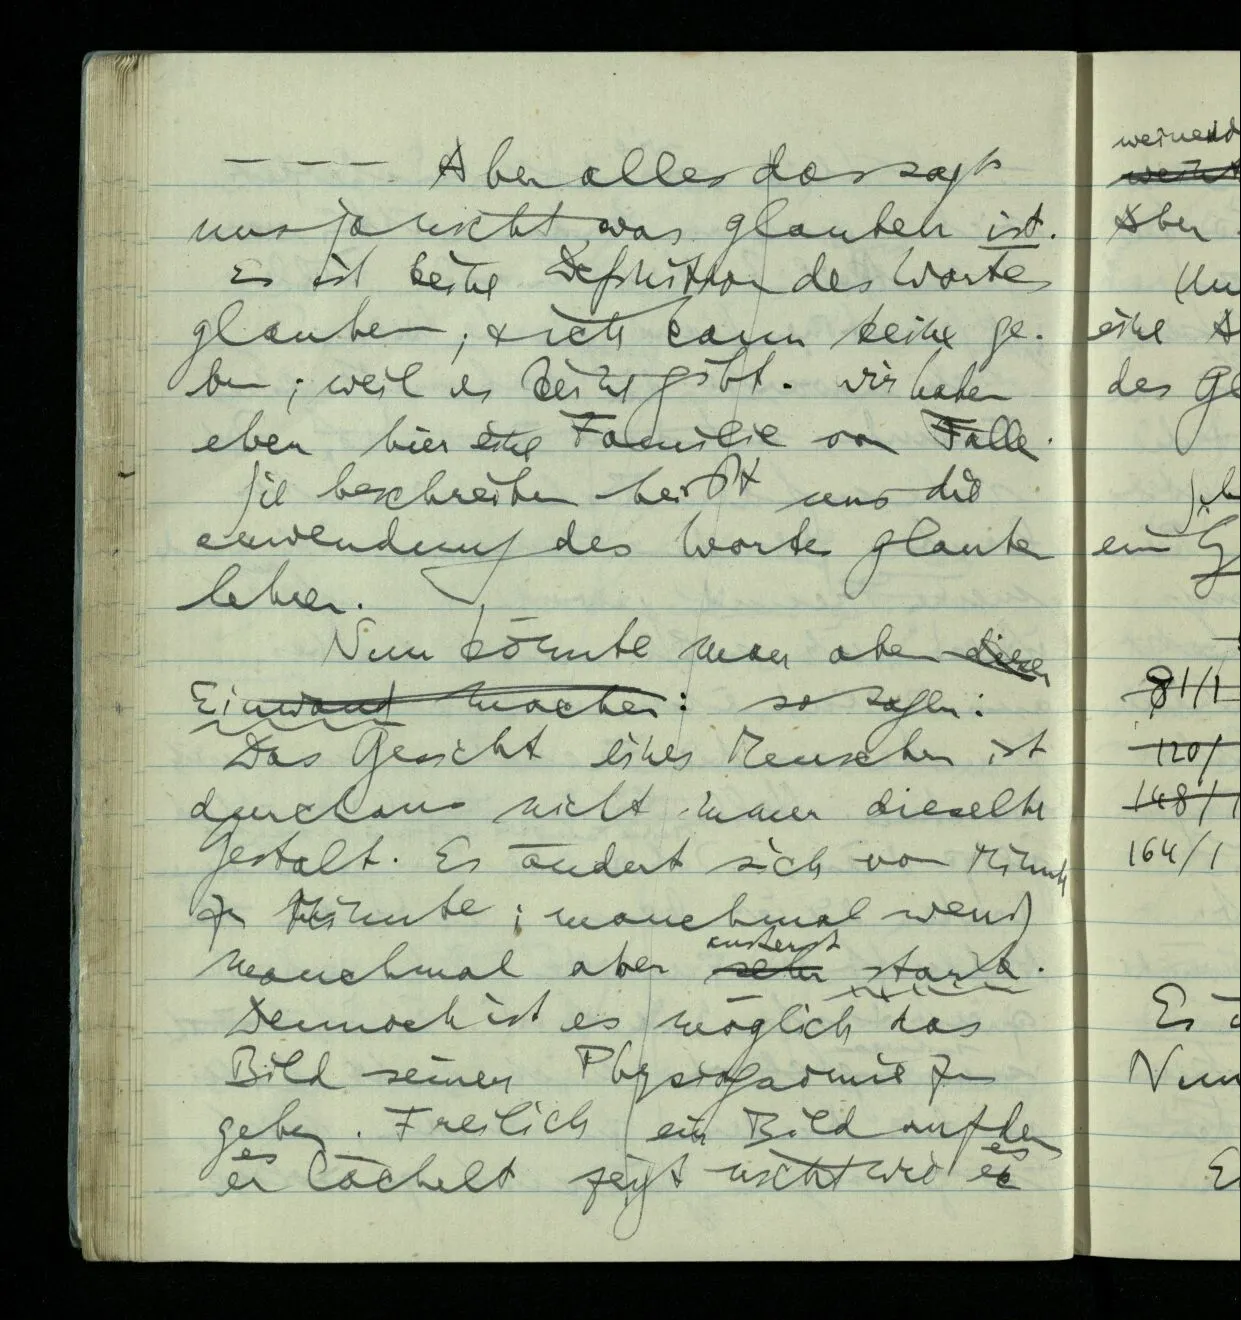 – – – Aber alles das sagt
uns ja nicht, was glauben ist.
Es ist keine Definition des Wortes
glauben; & ich kann keine ge-
ben; weil es keine gibt. Wir haben
eben hier eine Familie von Fälle
Sie beschreiben heißt uns die
anwendung des Wortes glauben
lehren.
Nun könnte man aber diesen
Einwand machen: so sagen:
Das Gesicht eines Menschen ist
durchaus nicht immer dieselbe
Gestalt. Es ändert sich von Minute
zu Minute; manchmal wenig
manchmal aber sehr äußerst stark.
Dennoch ist es möglich das
Bild seiner Physiognomie zu
geben. Freilich ein Bild auf dem
es lächelt zeigt nicht wie es
weinend
Aber
eine
des
ein
81/1
120/
148/1
164/1
Es
Nun
E